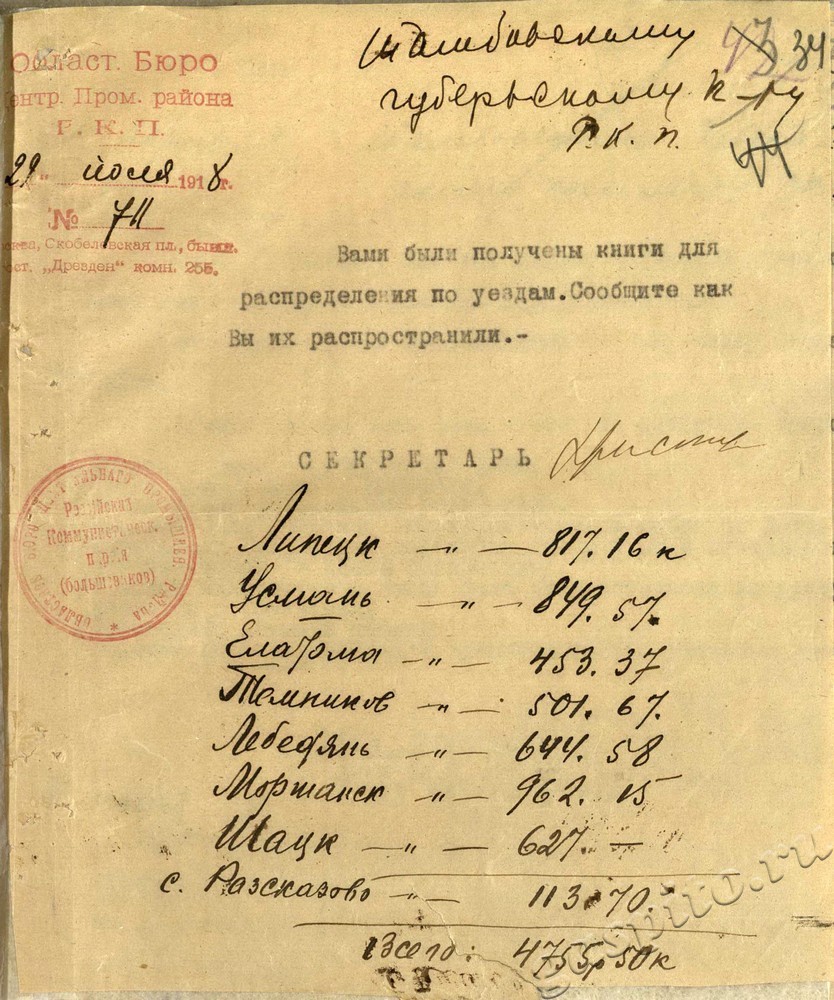 Област. Бюро
Центр. Пром. района
Р. К. П.
29 " июля 1918 г.
№ 711
Москва, Скобелевская пл., бывш.
гост. „Дрезден“ комн. 255.
Тамбовскому
губернскому К-ту
Р. К. П.
34
44
Вами были получены книги для
распределения по уездам.Сообщите как
Вы их распространили.-
СЕКРЕТАРЬ
Российская
Коммунистическ.
партия
(большевиков)
Липецк — „ — 817. 16 к
Усмань — „ — 849. 57.
Елатма — „ — 453. 37
Темников — „ — 501. 67.
Лебедянь — „ — 644. 58
Моршанск — „ — 962. 15
Шацк — „ — 627. —
с. Разсказово — „ — 113. 70.
Всего: 4755р 50к